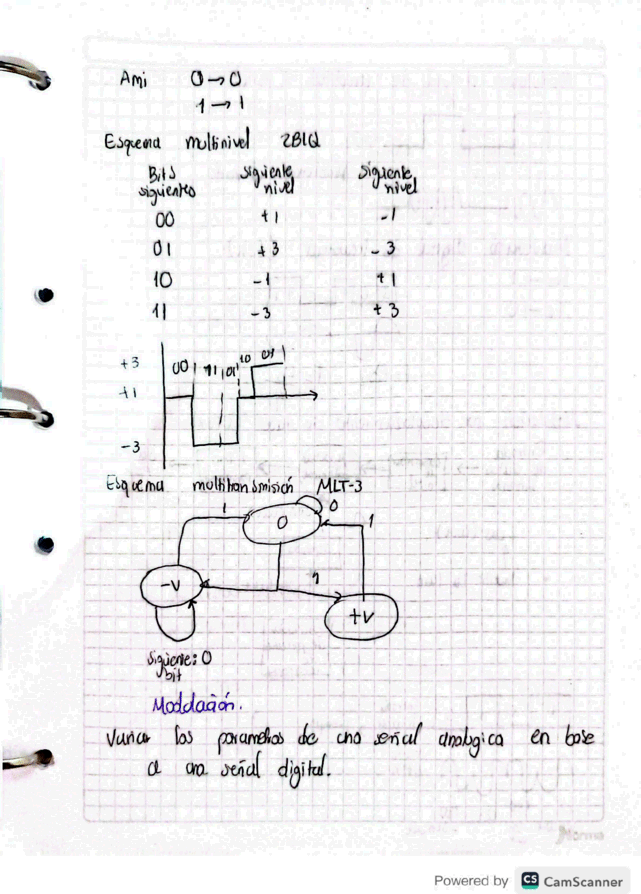 Ami 0→0
1→1
Esquema multinivel 2B1Q
Bits siguiente siguiente
siguientes nivel nivel
00 +1 -1
01 +3 -3
10 -1 +1
11 -3 +3
+3 00 11 01 10 01
+1
-3
Esquema multitransmisión MLT-3
1 0 0 1
-V 1 +V
Siguiente: 0
bit
Modulación.
Variar los parametros de una señal analogica en base
a una señal digital.
Norma
Powered by CS CamScanner